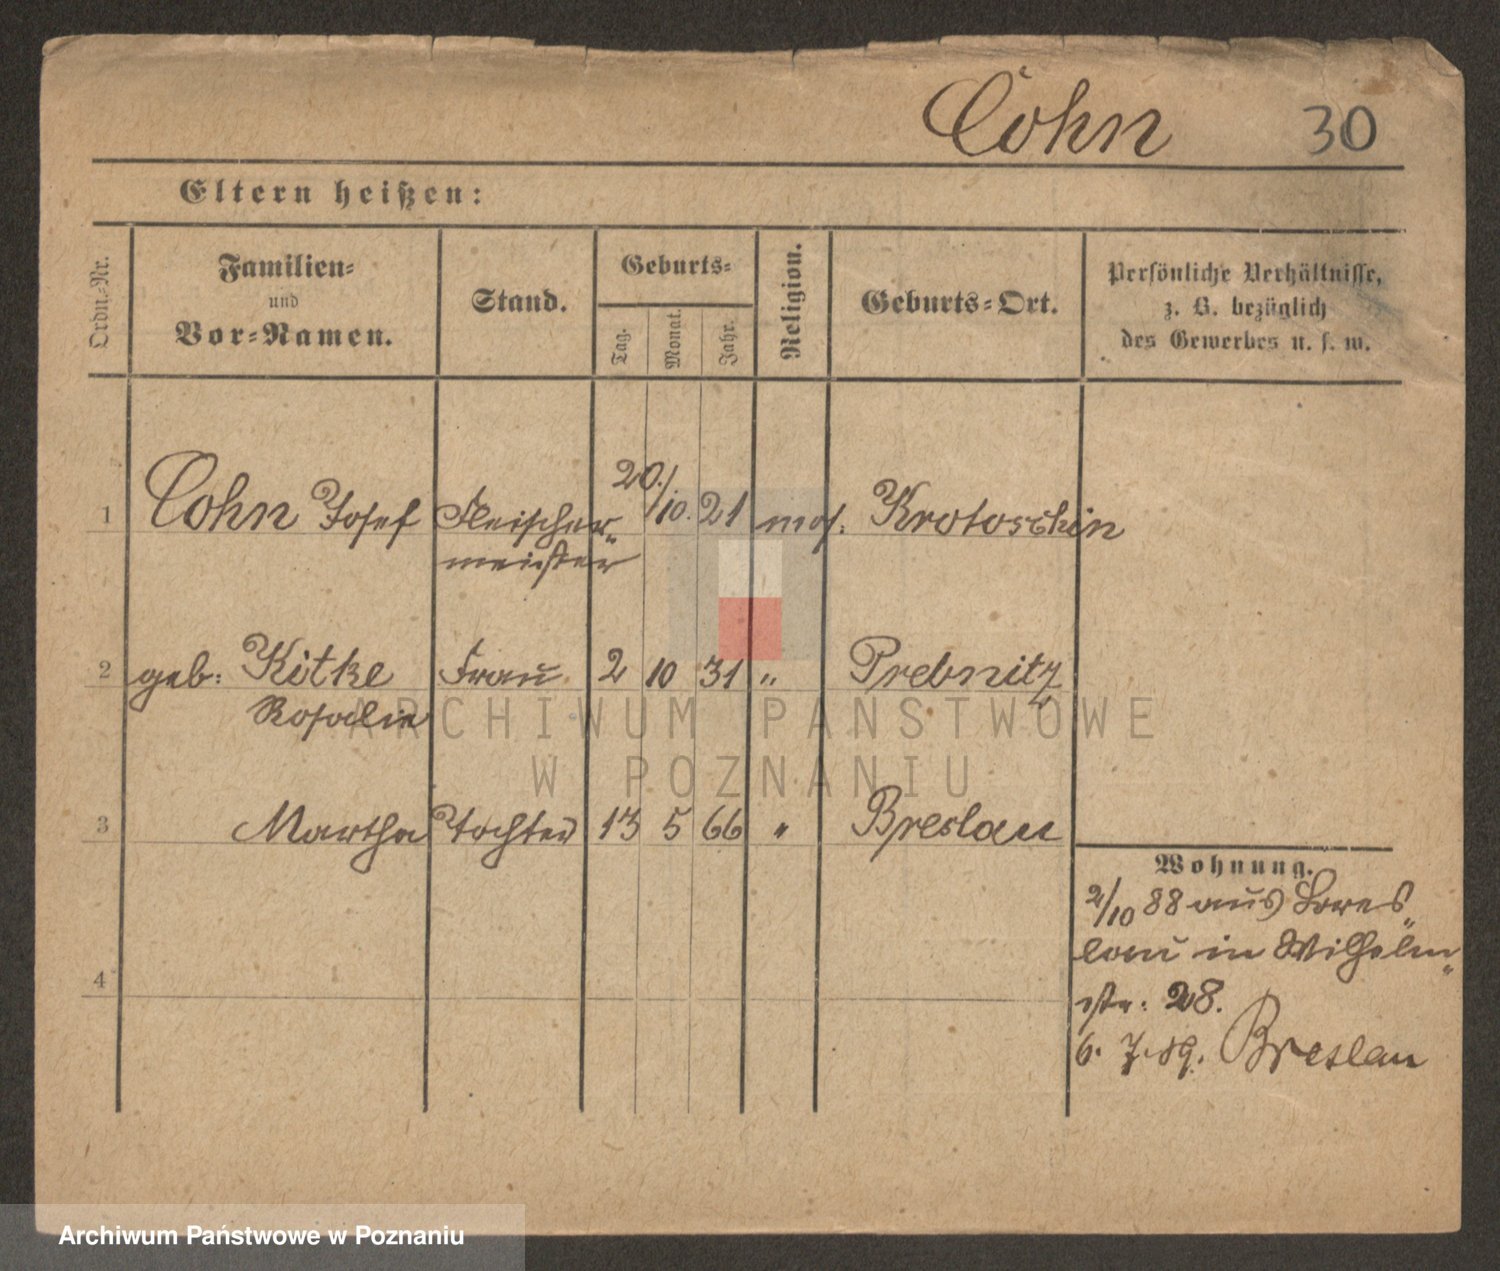 Cohn 30
Eltern heißen:
Ordn.-Nr.
Familien-
und
Vor-Namen.
Stand.
Geburts-
Tag.
Monat.
Jahr.
Religion.
Geburts-Ort.
Persönliche Verhältnisse,
z. B. bezüglich
des Gewerbes u. s. w.
1 Cohn Josef Fleischer- 20./10. 21 mos. Krotoschin
meister
2 geb: Kitke Frau 2 10 31 " Prebnitz
Rosalie
3 Martha Tochter 13 5 66 " Breslau
4
Wohnung.
2/10 88 aus Bres-
lau in Wilhelm-
str. 28.
6. 7. 89. Breslau
ARCHIWUM PAŃSTWOWE
W POZNANIU
Archiwum Państwowe w Poznaniu